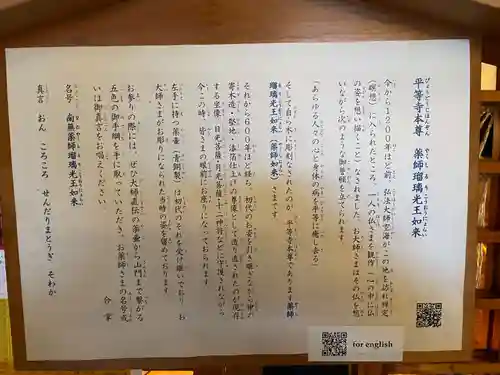 平等寺本尊　薬師瑠璃光王如来
今から１２００年ほど前、弘法大師空海がこの地を訪れ禅定
（瞑想）に入られたところ、一人の仏さまを観作（心の中に仏
の姿を思い描くこと）なされました。お大師さまはその仏を想
いながら次のような御誓願を立てられます。
「あらゆる人々の心と身体の病を平等に癒しある」
そして自ら木に彫刻なされたのが、平等寺本尊であります薬師
瑠璃光王如来（薬師如来）さまです。
それから６００年ほど経ち、初代のお姿を引き継ぎながら檜が
寄木造・堅地・漆箔仕上げの尊像として造り直されたのが現存
する坐像。日光菩薩・月光菩薩・十二神将などに守護されながら
今この時、皆さまの眼前にお座りになっておられます。
左手に持つ薬壷（青銅製）は初代のそれを受け継いでおり、お
大師さまがお彫りになられた当時の姿を留めております。
お参りの際には、ぜひ大師直伝の薬壷から山門まで繋がる
五色の御手綱を手に取っていただき、お薬師さまの名号或
いは御真言をお唱えください。
合掌
名号　南無薬師瑠璃光王如来
真言　おん　ころころ　せんだりまとうぎ　そわか
for english